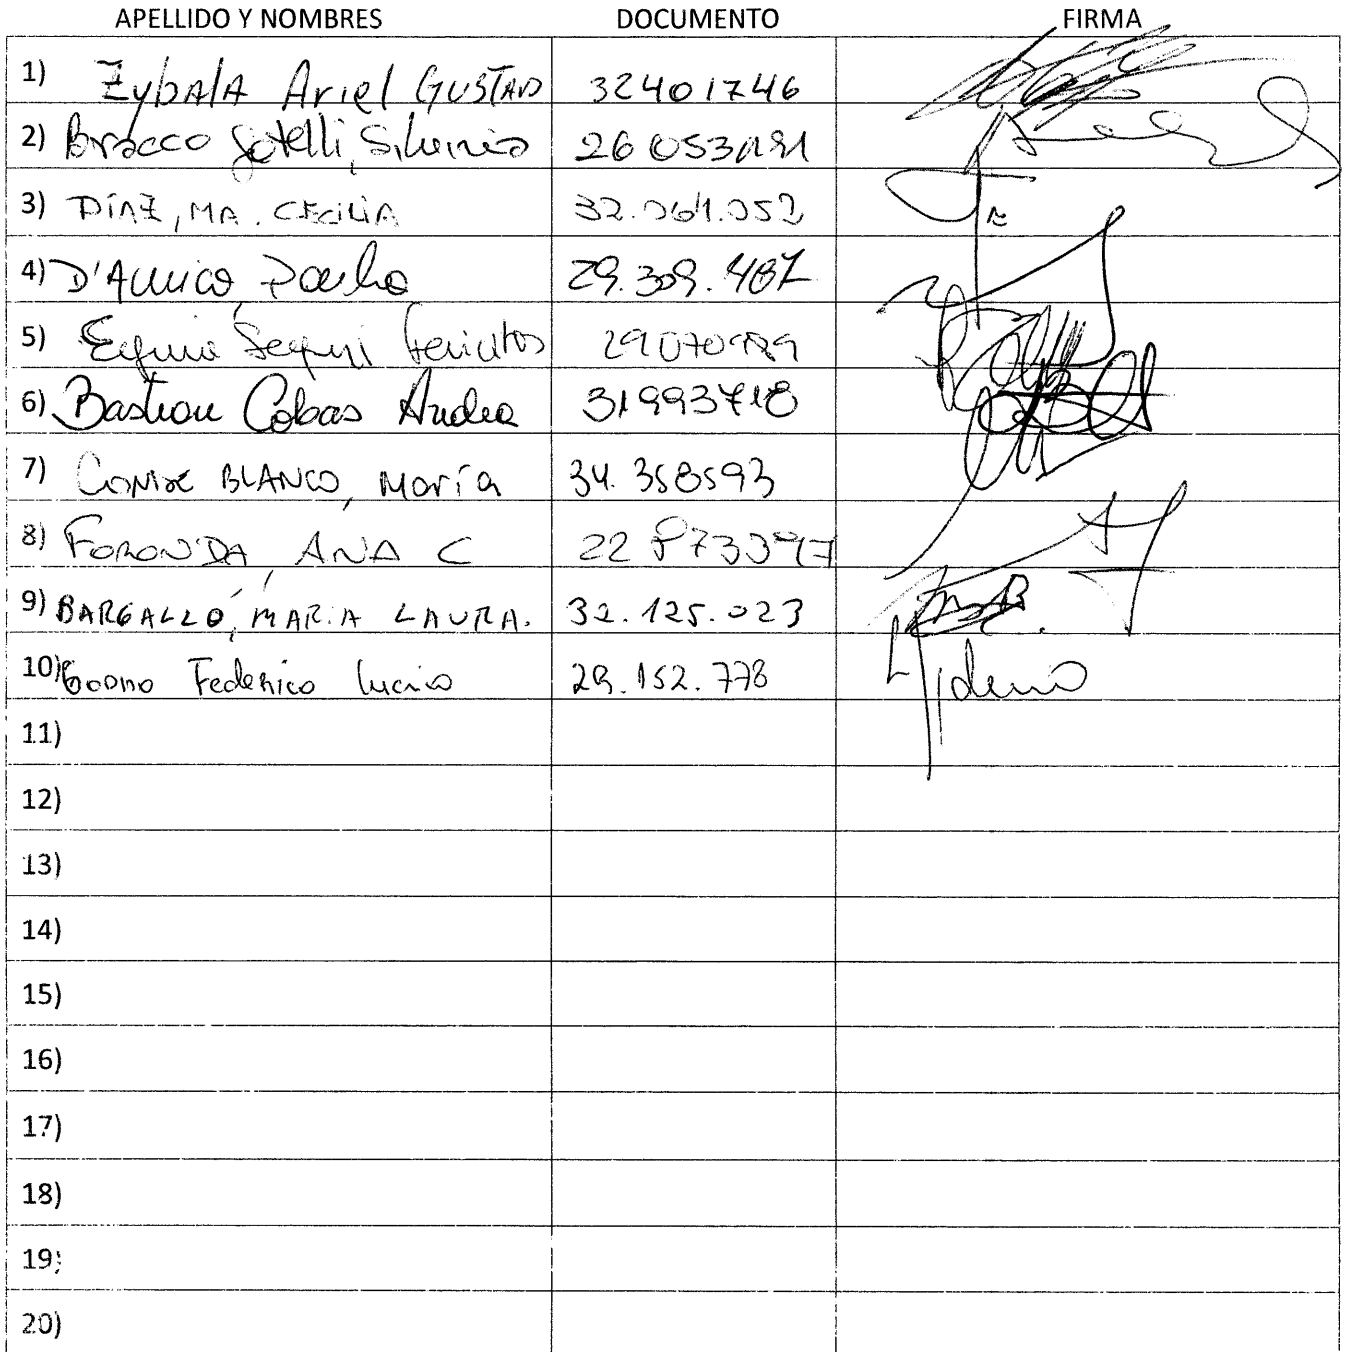 APELLIDO Y NOMBRES DOCUMENTO FIRMA
1) Zybala Ariel GUSTAVO 32401746
2) Bracco Sotelli, Silvina 26053191
3) DÍAZ, MA. CECILIA 32.061.052
4) D'Amico, 29.309.487
5) 
6) Bastion Cobas Andrea 31993718
7) CONDE BLANCO, María 34.358593
8) FORONDA, ANA C
9) BARGALLÓ, MARIA LAURA. 32.125.023
10) Federico Lucio 29.152.778
11)
12)
13)
14)
15)
16)
17)
18)
19)
20)